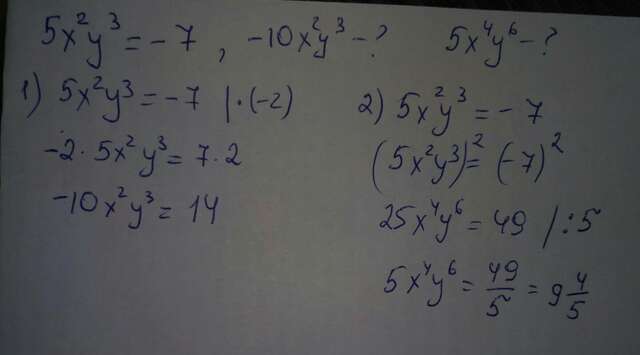 5x²y³ = -7 , -10x²y³ - ? 5x⁴y⁶ - ?
1) 5x²y³ = -7 | · (-2)
-2 · 5x²y³ = 7 · 2
-10x²y³ = 14
2) 5x²y³ = -7
(5x²y³)² = (-7)²
25x⁴y⁶ = 49 | : 5
5x⁴y⁶ = 49/5 = 9 4/5